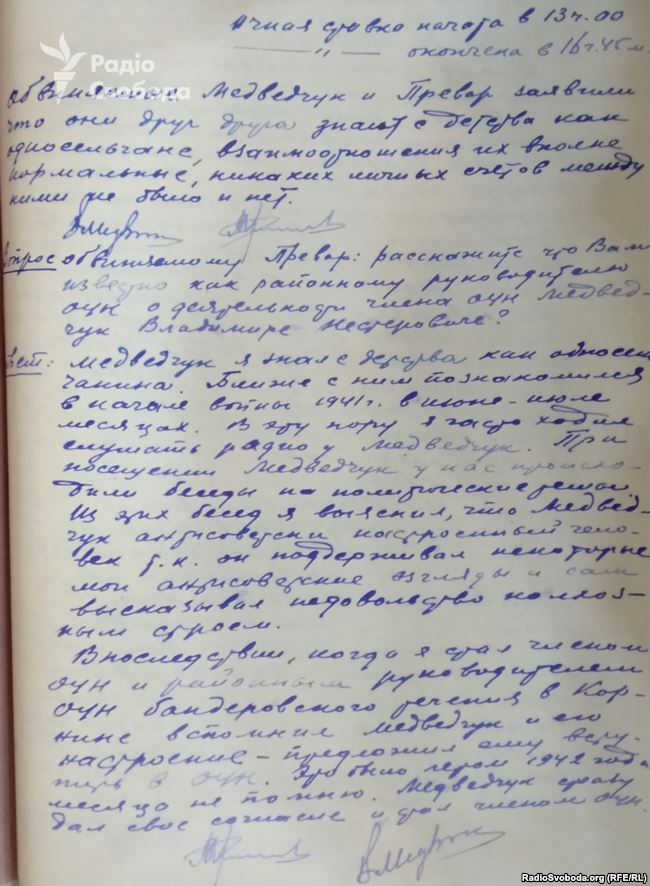 Очная ставка начата в 13ч.00
— " — окончена в 16ч.45м.
Радіо
Свобода
Обвиняемые Медведчук и Превар заявили
что они друг друга знают с детства как
односельчане, взаимоотношения их вполне
нормальные, никаких личных счетов между
ними не было и нет.
Вопрос обвиняемому Превар: расскажите что Вам
известно как районному руководителю
оун о деятельности члена оун Медвед-
чук Владимире Нестеровиче?
Ответ: Медведчук я знал с детства как односель
чанина. Ближе с ним познакомился
в начале войны 1941г. в июне-июле
месяцах. В эту пору я часто ходил
слушать радио у Медведчук. При
посещении Медведчук у нас происхо-
дили беседы на политические темы.
Из этих бесед я выяснил, что Медвед-
чук антисоветски настроенный чело-
век т.к. он поддерживал некоторые
мои антисоветские взгляды и сам
высказывал недовольство колхоз-
ным строем.
Впоследствии, когда я стал членом
оун и районным руководителем
оун бандеровского течения в Кор-
нине вспомнил Медведчук и его
настроение – предложил ему всту-
пить в оун. Это было летом 1942 года
месяца не помню. Медведчук сразу
дал свое согласие и стал членом оун.
RadioSvoboda.org (RFE/RL)